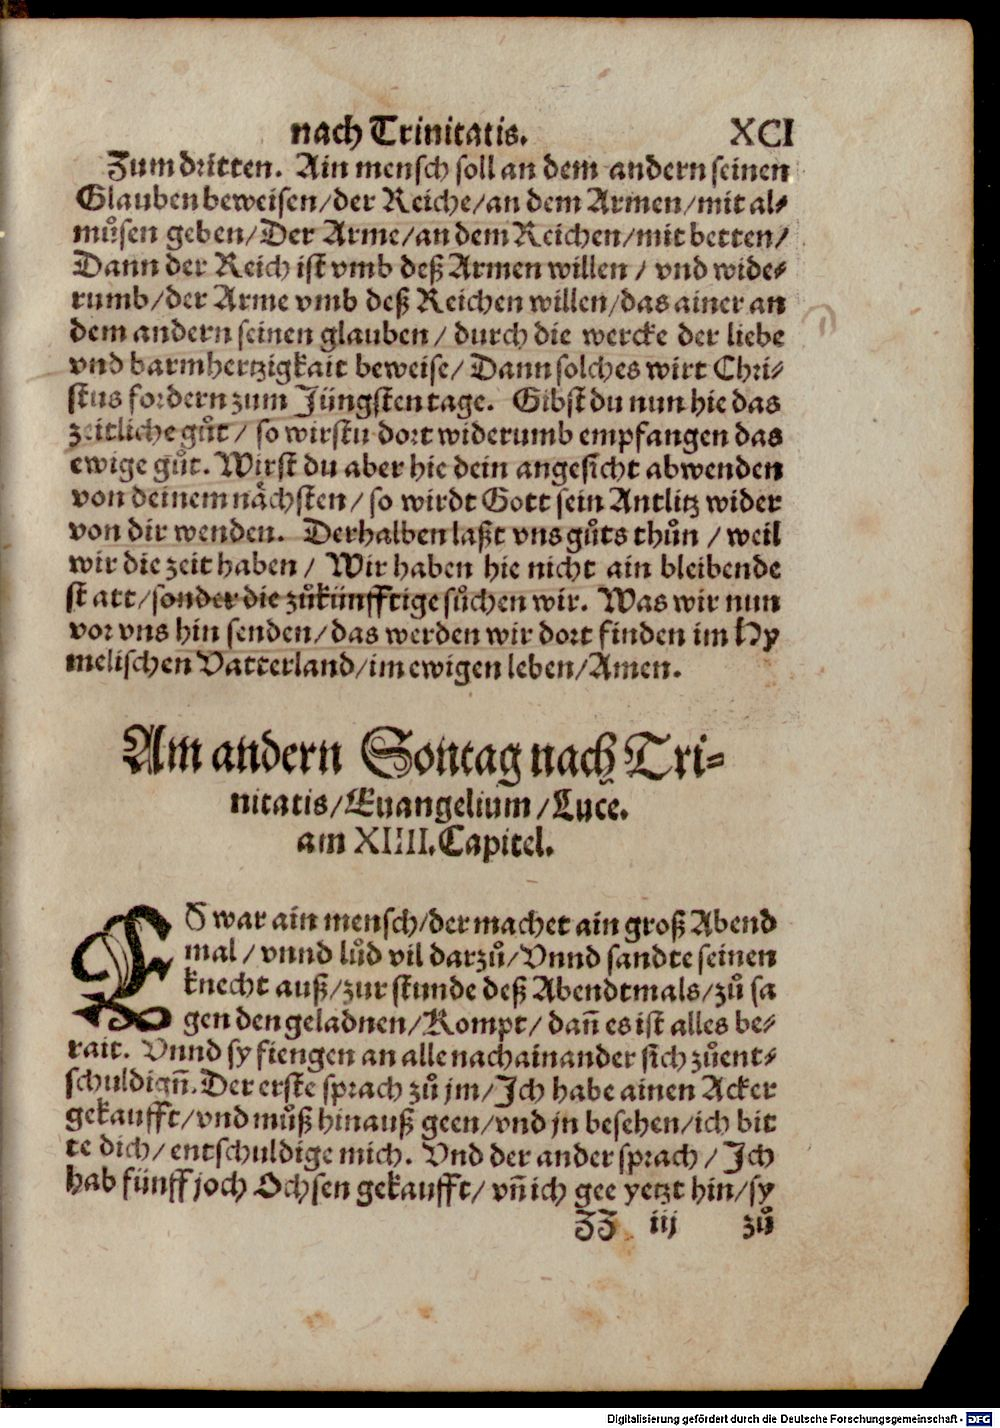 nach Trinitatis. XCI
Zum dritten. Ain mensch soll an dem andern seinen
Glauben beweisen/der Reiche/an dem Armen/mit al-
můsen geben/Der Arme/an dem Reichen/mit betten/
Dann der Reich ist vmb deß Armen willen / vnd wide-
rumb/der Arme vmb deß Reichen willen/das ainer an
dem andern seinen glauben / durch die wercke der liebe
vnd barmhertzigkait beweise/ Dann solches wirt Chri-
stus fordern zum Jüngsten tage. Gibst du nun hie das
zeitliche gůt / so wirstu dort widerumb empfangen das
ewige gůt. Wirst du aber hie dein angesicht abwenden
von deinem nächsten / so wirdt Gott sein Antlitz wider
von dir wenden. Derhalben laßt vns gůts thůn / weil
wir die zeit haben / Wir haben hie nicht ain bleibende
statt/sonder die zůkünfftige sůchen wir. Was wir nun
vor vns hin senden/das werden wir dort finden im Hy
melischen Vatterland/im ewigen leben/Amen.
Am andern Sontag nach Tri-
nitatis/Euangelium/Luce.
am XIIII. Capitel.
ES war ain mensch/der machet ain groß Abend
mal / vnnd lůd vil darzů/Vnnd sandte seinen
knecht auß/zur stunde deß Abendtmals/zů sa
gen den geladnen/Kompt/ dañ es ist alles be-
rait. Vnnd sy fiengen an alle nachainander sich zůent-
schuldigñ. Der erste sprach zů jm/Ich habe ainen Acker
gekaufft/vnd můß hinauß geen/vnd jn besehen/ich bit
te dich/entschuldige mich. Vnd der ander sprach / Ich
hab fünff joch Ochsen gekaufft/ vñ ich gee yetzt hin/sy
ZZ iij zů
Digitalisierung gefördert durch die Deutsche Forschungsgemeinschaft - DFG